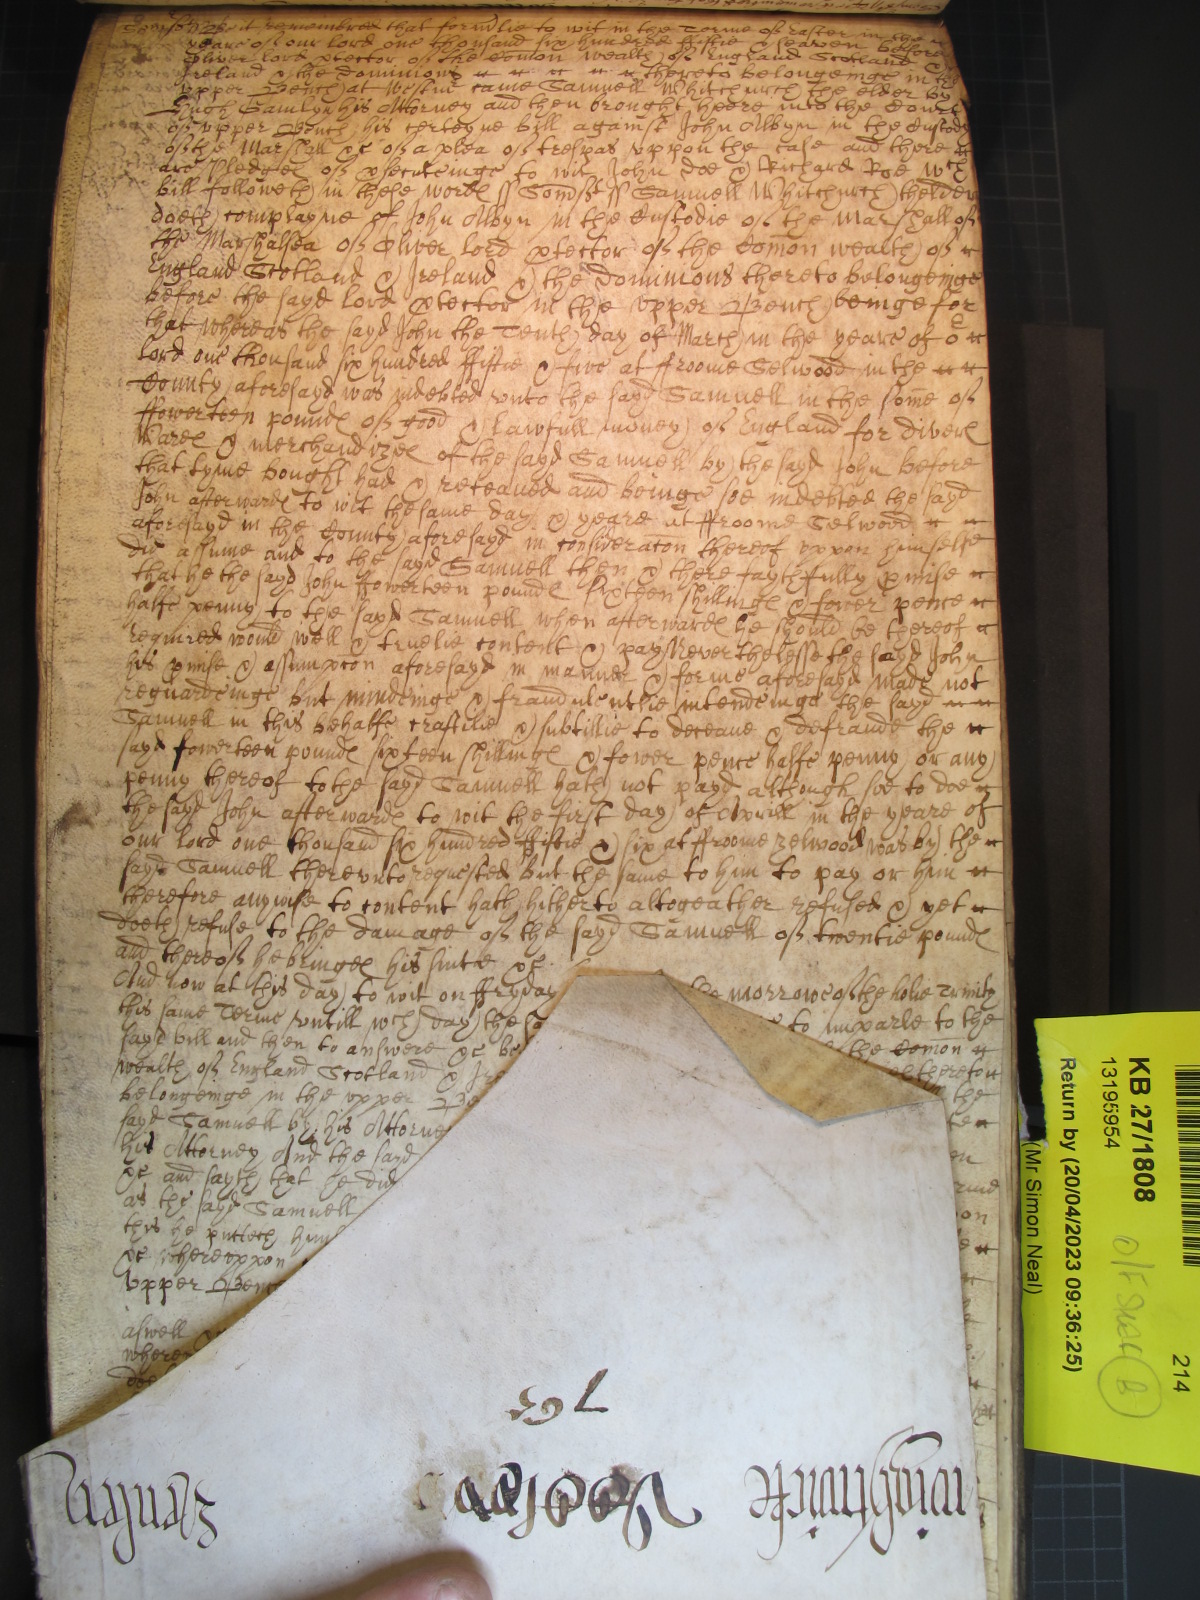 Somst ss Be it remembred that formlie to wit in the Terme of Easter in the
yeare of our lord one thousand six hundred fiftie & seaven before
Oliver lord ptector of the Comon wealth of England Scotland &
Ireland & the dominions thereto belongeinge in the
upper Bench at Westmr came Samuell Whitchurch the elder by
Hugh Hamlyn his Attorney and then brought heere into the Court
of upper Bench his certeyne bill against John Albyn in the Custody
of the Marshall &c of a plea of trespas uppon the case and there
are pledges of psecuteinge to wit John Doe & Richard Roe wch
bill followeth in these wordes ss Somst ss Samuell Whitchurch thelder
doeth complayne of John Albyn in the Custodie of the Marshall of
the Marshalsea of Oliver lord ptector of the Comon wealth of
England Scotland & Ireland & the dominions thereto belongeinge
before the sayd lord ptector in the upper Bench beinge for
that whereas the sayd John the Tenth day of March in the yeare of or
lord one thousand six hundred fiftie & five at ffroome Selwood in the
County aforesayd was indebted unto the sayd Samuell in the some of
ffowerteen pounds of good & lawfull money of England for divers
Wares & merchandizes of the sayd Samuell by the sayd John before
that tyme bought had & receaved and beinge soe indebted the sayd
John afterwards to wit the same day & yeare at ffroome Selwood
aforesayd in the County aforesayd in consideracon thereof uppon himselfe
did assume and to the sayd Samuell then & there faythfully pmise
that he the sayd John ffowerteen pounds sixteen shillings & fower pence
halfe penny to the sayd Samuell when afterwards he should be thereof
required would well & truelie content & pay Neverthelesse the sayd John
his pmise & assumpcon aforesayd in manner & forme aforesayd made not
reguardeinge but mindeinge & fraudulentlie intendeinge the sayd
Samuell in this behalfe craftilie & subtillie to deceave & defraude the
sayd fowerteen pounds sixteen shillings & fower pence halfe penny or any
penny thereof to the sayd Samuell hath not payd although soe to doe
the sayd John afterwards to wit the first day of Aprill in the yeare of
our lord one thousand six hundred fiftie & six at ffroome zelwood was by the
sayd Samuell thereunto requested But the same to him to pay or him
therefore anywise to content hath hitherto altogeather refused & yet
doeth refuse to the damage of the sayd Samuell of twentie pounds
and thereof he bringes his suite &c
And now at this day to wit on ffryday the morrowe of the holie Trinity
this same Terme untill wch day the sa to imparle to the
sayd bill and then to answere &c be the Comon
wealth of England Scotland & Ire thereto
belongeinge in the upper Be the
sayd Samuell by his Attorne
his Attorney And the sayd
&c and sayth that he did
as the sayd Samuell
this he putteth him
&c whereuppon
Upper Benc
aswell
where
KB 27/1808
13195954
Return by (20/04/2023 09:36:25)
(Mr Simon Neal)
214
B
767
wightwick
Zenden